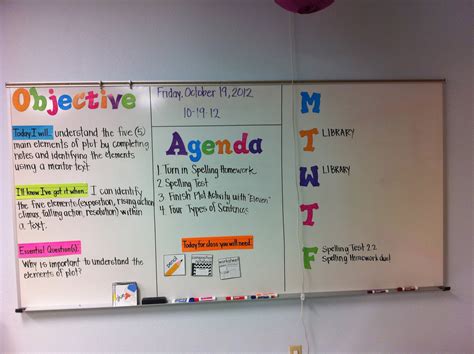 Objective
Today I will... understand the five (5)
main elements of plot by completing
notes and identifying the elements
using a mentor text
I'll know I've got it when... I can identify
the five elements (exposition, rising action
climax, falling action, resolution) within
a text.
Essential Question(s):
Why is important to understand the
elements of plot?
Friday, October 19, 2012
10-19-12
Agenda
1. Turn in Spelling Homework
2. Spelling Test
3. Finish Plot Activity with "Eleven"
4. Four Types of Sentences
Today for class you will need:
pencil
worksheet
M
T LIBRARY
W LIBRARY
T
F Spelling Test 2.2
Spelling Homework due!